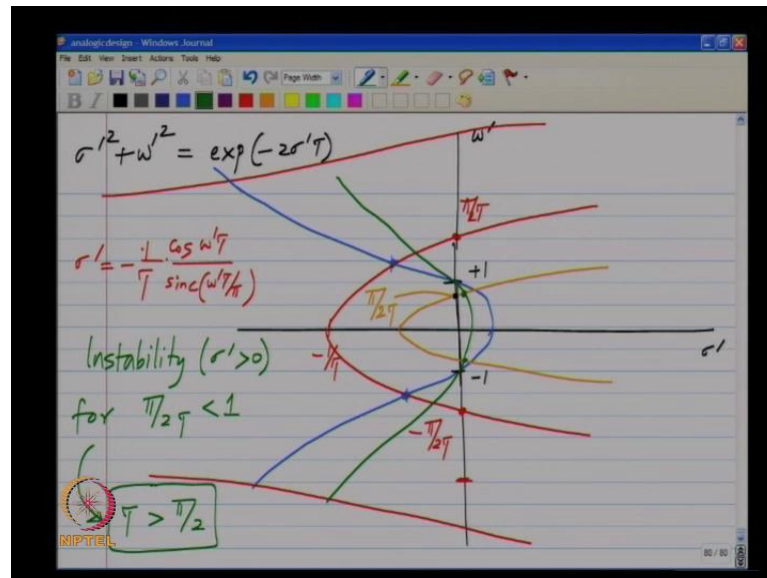 analogicdesign - Windows Journal
File Edit View Insert Actions Tools Help
Page Width
B I
σ'² + ω'² = exp(-2σ'T)
ω'
π/2T
σ' = - 1/T · cos ω'T / sinc(ω'T/π)
+1
π/2T
σ'
Instability (σ'>0)
-1/T
-1
for π/2T < 1
-π/2T
T > π/2
NPTEL
80 / 80